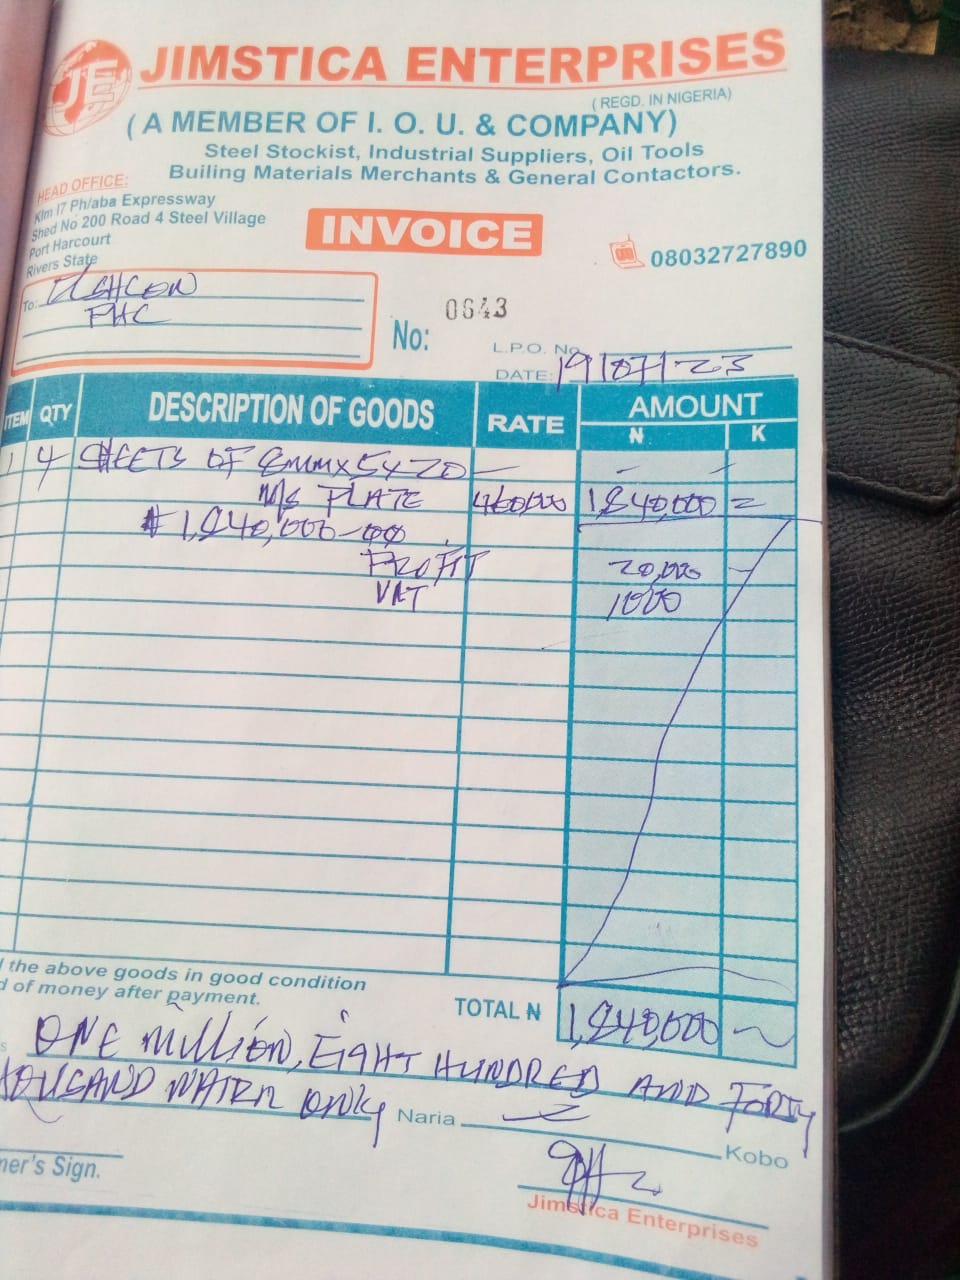 JE
JIMSTICA ENTERPRISES
(REGD. IN NIGERIA)
(A MEMBER OF I. O. U. & COMPANY)
Steel Stockist, Industrial Suppliers, Oil Tools
Builing Materials Merchants & General Contactors.
HEAD OFFICE:
Klm 17 Ph/aba Expressway
Shed No 200 Road 4 Steel Village
Port Harcourt
Rivers State
INVOICE
08032727890
To:
PHC
No: 0643
L.P.O. No
DATE: 19/07/23
ITEM QTY DESCRIPTION OF GOODS RATE AMOUNT
₦ K
1 4 SHEETS OF 8mm x 5 x 20 — - -
M/S PLATE 460,000 1,840,000 =
₦1,840,000-00
PROFIT 20,000 -
VAT 1000
the above goods in good condition
d of money after payment.
TOTAL ₦ 1,840,000 ~
ONE MILLION, EIGHT HUNDRED AND FORTY
THOUSAND NAIRA ONLY Naria
Kobo
mer's Sign.
Jimstica Enterprises